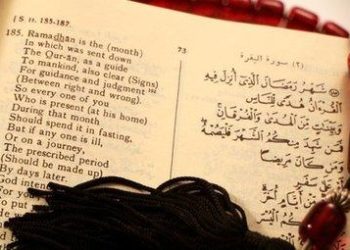 [ S II. 185-187.
73
(٢) سورة البقرة
185. Ramadhān is the (month)
In which was sent down
The Qur-ān, as a guide
To mankind, also clear (Signs)
For guidance and judgment
(Between right and wrong).
So every one of you
Who is present (at his home)
During that month
Should spend it in fasting,
But if any one is ill,
Or on a journey,
The prescribed period
(Should be made up)
By days later.
God intend
For you
To
شَهْرُ رَمَضَانَ الَّذِي أُنْزِلَ فِيهِ
الْقُرْآنُ هُدًى لِلنَّاسِ
وَبَيِّنَاتٍ مِنَ الْهُدَى وَالْفُرْقَانِ
فَمَنْ شَهِدَ مِنْكُمُ الشَّهْرَ فَلْيَصُمْهُ
وَمَنْ كَانَ مَرِيضًا
أَوْ عَلَى سَفَرٍ